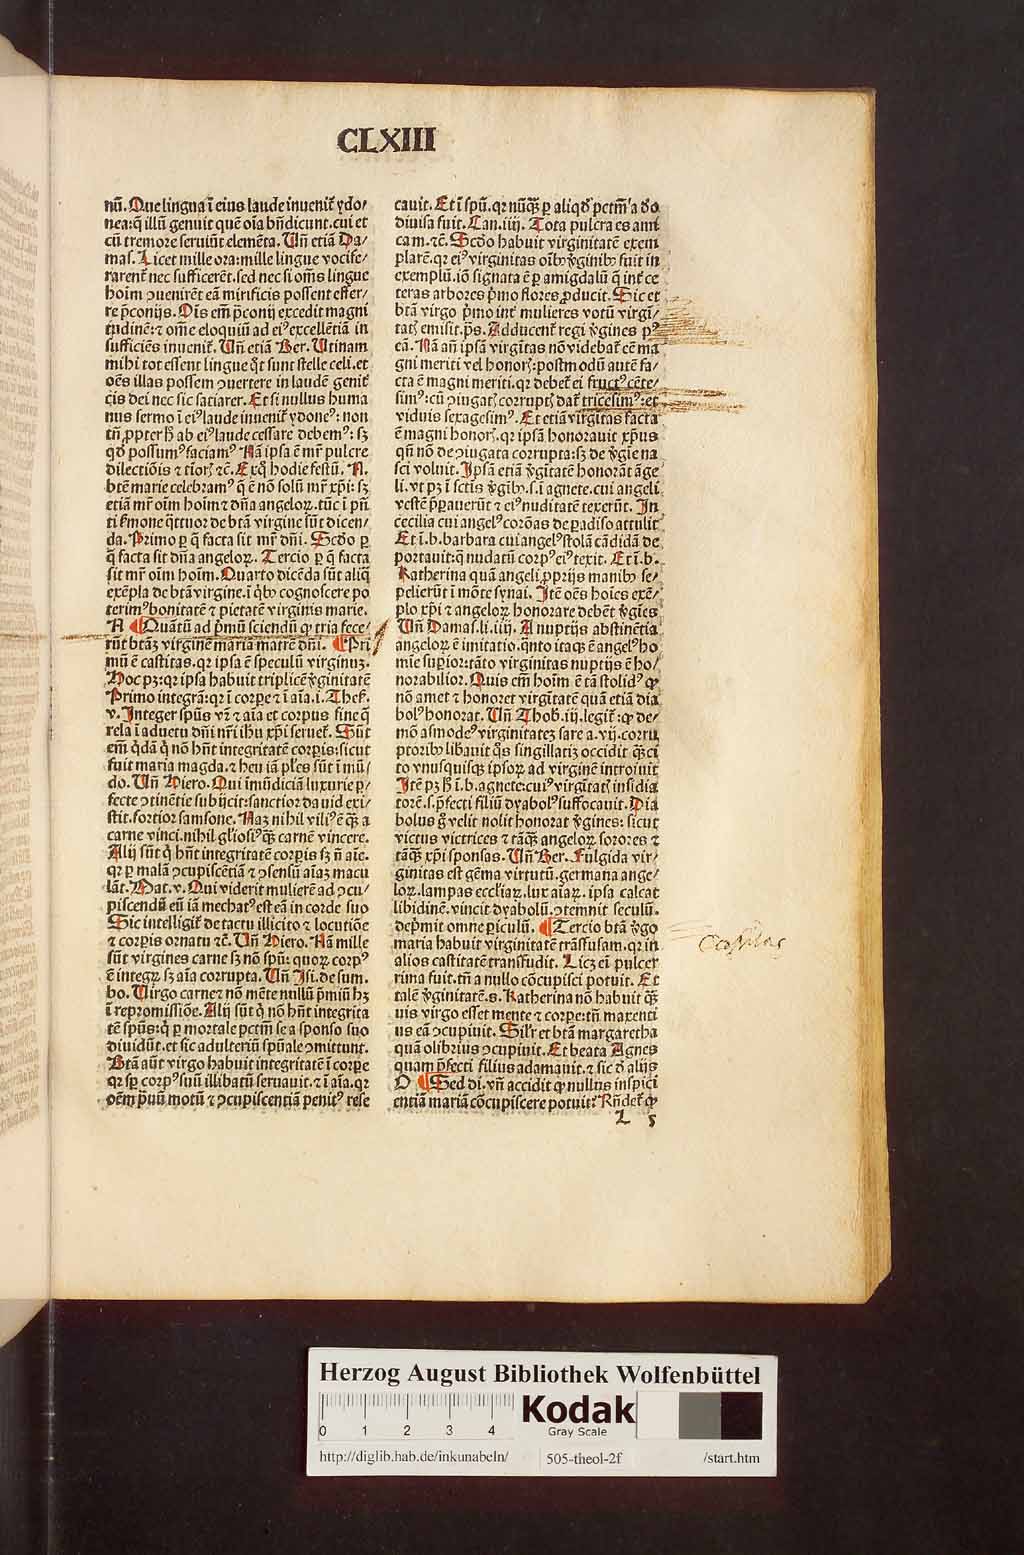 CLXIII
nū. Que lingua ī eius laude inuenit᷑ ydo/
nea: q̄ illū genuit quē oīa bn̄dicunt. cui et
cū tremore seruiūt elemēta. Un̄ etiā Da/
mas. Licet mille ora: mille lingue vocife/
rarent᷑ nec sufficerēt. sed nec si om̄s lingue
hoīm ↄuenirēt eā mirificis possent effer/
re p̄conijs. Oīs em̄ p̄conij excedit magni
tudinē: ⁊ om̄e eloquiū ad eiꝰ excellētiā in
sufficiēs inuenit᷑. Un̄ etiā Ber. Utinam
mihi tot essent lingue q̄t sunt stelle celi. et
oēs illas possem ↄuertere in laudē genit᷑
cis dei nec sic saciarer. Et si nullus huma
nus sermo ī eiꝰ laude inuenit᷑ ydoneꝰ: non
tn̄ ꝓpter h̄ ab eiꝰ laude cessare debemꝰ: sꝫ
qd̄ possumꝰ faciamꝰ Nā ipsa ē mr̄ pulcre
dilectiōis ⁊ tīorꝭ ⁊c̄. Ex q̄ hodie festū. N.
btē marie celebramꝰ q̄ ē nō solū mr̄ xp̄i: sꝫ
etiā mr̄ oīm hoīm ⁊ dn̄a angeloꝝ. tūc ī pn̄
ti ẜmone q̄ttuor de btā virgine sūt dicen/
da. Primo ꝑ q̄ facta sit mr̄ dn̄i. Scd̄o ꝑ
q̄ facta sit dn̄a angeloꝝ. Tercio ꝑ q̄ facta
sit mr̄ oīm hoīm. Quarto dicēda sūt aliq̄
exēpla de btā virgine. ī qͥbꝰ cognoscere po
terimꝰ bonitatē ⁊ pietatē virginis marie.
A ¶ Quātū ad p̄mū sciendū ꝙ tria fece/
rūt btāꝫ virginē mariā matrē dn̄i. ¶ Pri
mū ē castitas. qꝛ ipsa ē speculū virginuꝫ.
Hoc pꝫ: qꝛ ipsa habuit triplicē v̓ginitatē
Primo integrā: qꝛ ī corꝑe ⁊ ī aīa. i. Thes.
v. Integer spūs vr̄ ⁊ aīa et corpus sine q̄
rela ī aduetu dn̄i nr̄i ihu xp̄i seruet᷑. Sūt
em̄ qͥdā qͥ nō hn̄t integritatē corꝑis: sicut
fuit maria magda. ⁊ heu iā pl̄es sūt ī mū/
do. Un̄ Hiero. Qui īmūdiciā luxurie ꝑ/
fecte ↄtinētie subijcit: sanctior dauid exi/
stit. fortior samsone. Naꝫ nihil viliꝰ ē qꝫ a
carne vinci. nihil gl̄iosiꝰ qꝫ carnē vincere.
Alij sūt qͥ hn̄t integritatē corꝑis sꝫ nō aīe.
qꝛ ꝑ malā ↄcupiscētiā ⁊ ↄsensū aīaꝫ macu
lāt. Mat. v. Qui viderit mulierē ad ↄcu/
piscendū eū iā mechatꝰ est eā in corde suo
Sic intelligit᷑ de tactu illicito ⁊ locutiōe
⁊ corꝑis ornatu ⁊c̄. Un̄ Hiero. Nā mille
sūt virgines carne sꝫ nō spū: quoꝝ corpꝰ
ē integrꝫ sꝫ aīa corrupta. Un̄ Isi. de sum.
bo. Uirgo carneꝫ nō mēte nullū p̄miū hꝫ
ī repromissiōe. Alij sūt qͥ nō hn̄t integrita
tē spūs: qͥ ꝑ mortale pctm̄ se a sponso suo
diuidūt. et sic adulteriū spūale ↄmittunt.
Btā aūt virgo habuit integritatē ī corꝑe
qꝛ sꝑ corpꝰ suū illibatū seruauit. ⁊ ī aīa. qꝛ
oēm p̄uū motū ⁊ ↄcupiscentiā penitꝰ rese
cauit. Et ī spū. qꝛ nūqꝫ ꝑ aliqd̄ pctm̄ a d̄o
diuisa fuit. Can. iiij. Tota pulcra es ami
ca m. ⁊c̄. Scd̄o habuit virginitatē exem
plarē. qꝛ eiꝰ virginitas oībꝰ v̓ginibꝰ fuit in
exemplū. iō signata ē ꝑ amigdalū q̄ int᷑ ce
teras arbores p̄mo flores ꝓducit. Sic et
btā virgo p̄mo int᷑ mulieres votū virgi/
tatꝭ emisit. ps. Adducent᷑ regi v̓gines pꝰ
eā. Nā an̄ ipsā virgītas nō videbat᷑ eē ma
gni meriti vel honorꝭ: postmodū autē fa/
cta ē magni meriti. qꝛ debet᷑ ei fructꝰ cēte/
simꝰ: cū ↄiugatꝭ corruptꝭ dat᷑ tricesimꝰ: et
viduis sexagesimꝰ. Et etiā virgītas facta
ē magni honorꝭ. qꝛ ipsā honorauit xp̄us
qn̄ nō de ↄiugata corrupta: sꝫ de v̓gīe na
sci voluit. Ipsā etiā v̓gītatē honorāt āge/
li. vt pꝫ ī sctīs v̓gībꝰ. s. ī agnete. cui angeli
vestē p̄parauerūt ⁊ eiꝰ nuditatē texerūt. In
cecilia cui angelꝰ corōas de ꝑadiso attulit
Et ī. b. barbara cui angelꝰ stolā cādidā de
portauit: q̄ nudatū corpꝰ eiꝰ texit. Et ī. b.
Katherina quā angeli ꝓprijs manibꝰ se/
pelierūt ī mōte synai. Itē oēs hoīes exē/
plo xp̄i ⁊ angeloꝝ honorare debēt v̓gīes
Un̄ Damas. li. iiij. A nuptijs abstinētia
angeloꝝ ē imitatio. q̄nto itaqꝫ ē angelꝰ ho
mīe suꝑior: tāto virginitas nuptijs ē ho/
norabilior. Quis em̄ hoīm ē tā stolidꝰ ꝙ
nō amet ⁊ honoret virgītatē quā etiā dia
bolꝰ honorat. Un̄ Thob. iij. legit᷑: ꝙ de/
mō asmodeꝰ virginitateꝫ sare a. vij. corru
ptoribꝰ libauit q̄s singillatī occidit qꝫ ci
to vnusquisqꝫ ipsoꝝ ad virginē introiuit
Itē pꝫ h̄ ī. b. agnete: cuiꝰ virgītatꝭ insidia
torē. s. p̄fecti filiū dyabolꝰ suffocauit. Dia
bolus g̊ velit nolit honorat v̓gines: sicut
victus victrices ⁊ tāqꝫ angeloꝝ sorores ⁊
tāqꝫ xp̄i sponsas. Un̄ Ber. Fulgida vir/
ginitas est gēma virtutū. germana ange/
loꝝ. lampas eccl̄iaꝝ. lux aīaꝝ. ipsa calcat
libidinē. vincit dyabolū. ↄtemnit seculū.
dep̄mit omne ꝑiculū. ¶ Tercio btā v̓go
maria habuit virginitatē trāsfusam. qꝛ in
alios castitatē transfudit. Licꝫ eī pulcer
rima fuit. tn̄ a nullo cōcupisci potuit. Et
talē v̓ginitatē. s. Katherina nō habuit qꝫ
uis virgo esset mente ⁊ corꝑe: tn̄ maxenti
us eā ↄcupiuit. Sil̄r et btā margaretha
quā olibrius ↄcupiuit. Et beata Agnes
quam p̄fecti filius adamauit. ⁊ sic d̄ alijs
O ¶ Sed di. vn̄ accidit ꝙ nullus inspici
entiā mariā cōcupiscere potuit? Rn̄det᷑ ꝙ
L 5
Castitas
Herzog August Bibliothek Wolfenbüttel
0 1 2 3 4
Kodak
Gray Scale
http://diglib.hab.de/inkunabeln/ 505-theol-2f /start.htm